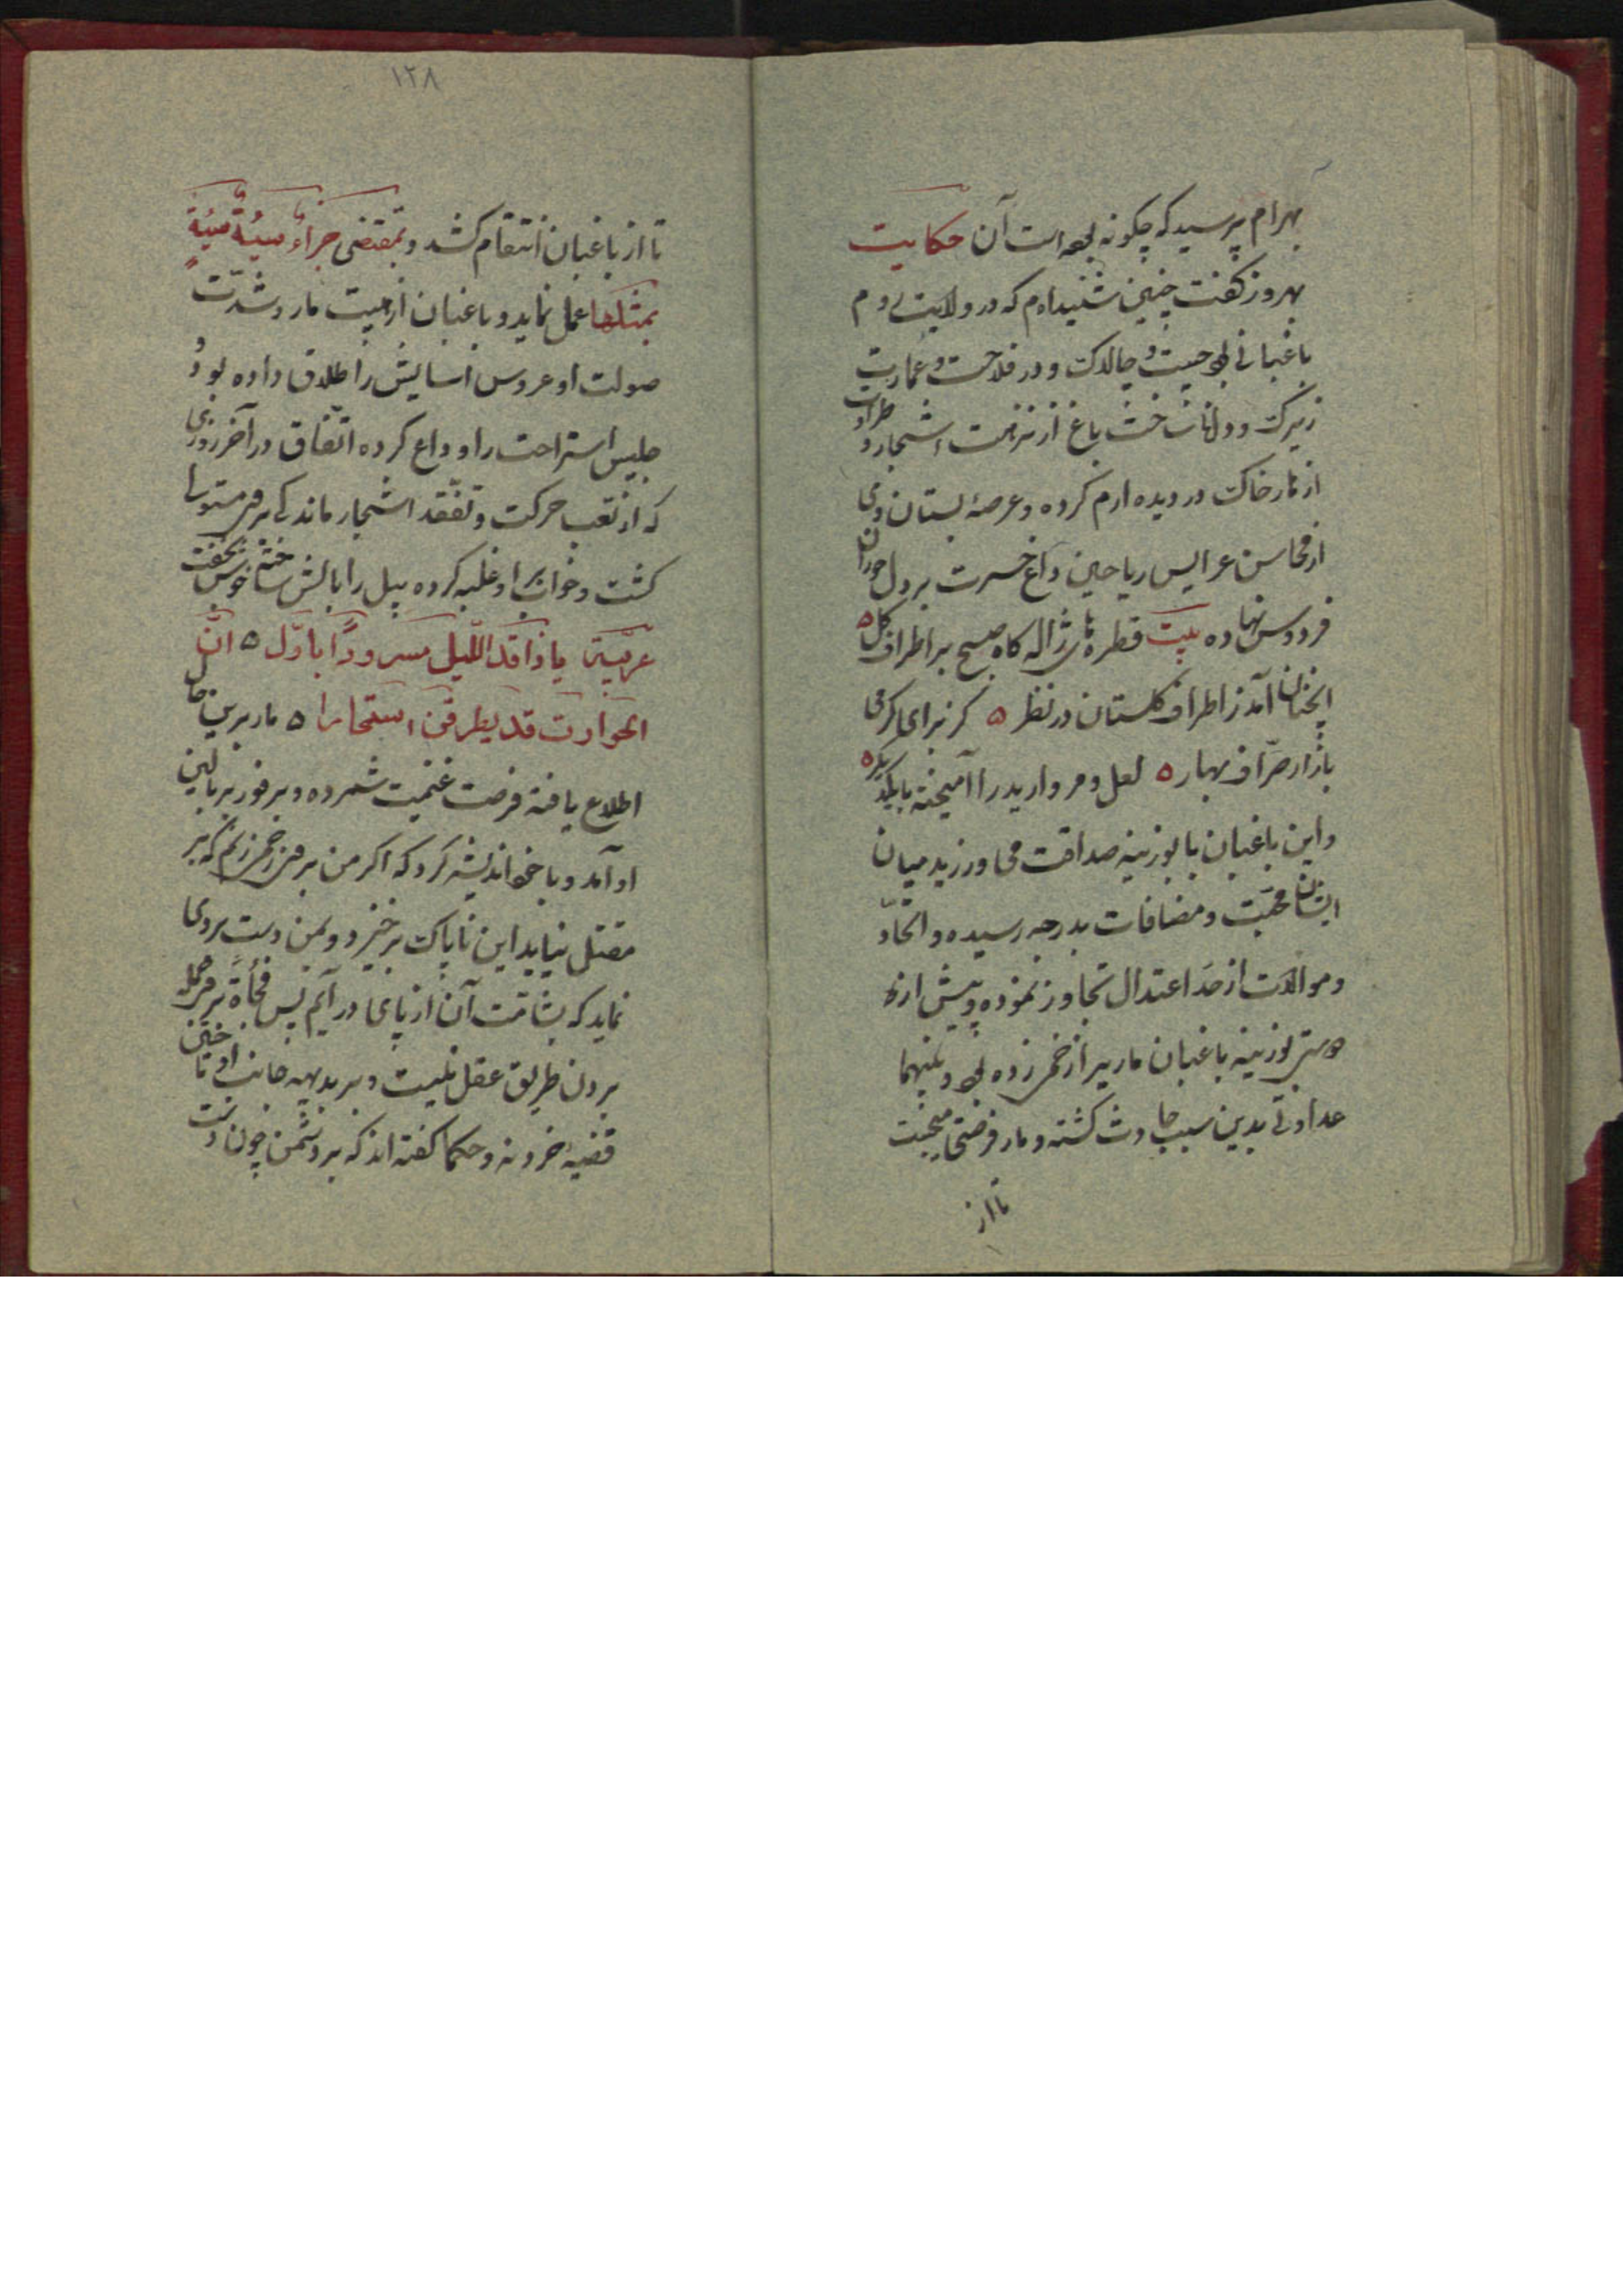 بهرام پرسید که چگونه بوده است آن حکایت
بهروز گفت چنین شنیده‌ام که در ولایت روم
باغبانی بود چست و چالاک و در فلاحت و عمارت
زیرک و دل باغ از نزهت اشجار و طراوت
خاک در دیده ارم کرده و عرصهٔ بستان وی
از محاسن عرایس ریاحین داغ حسرت بر دل حوران
فردوس نهاده بیت قطره‌های ژاله گاه صبح بر اطراف گل ه
آنچنان آمد ز اطراف گلستان در نظر ه کز برای گرمی
بازار صرّاف بهار ه لعل و مروارید را آمیخته با یکدیگر ه
و این باغبان با بوزینه صداقت می ورزید میان
ایشان محبّت و مضافات بدرجه رسیده و اتّحاد
و موالات از حدّ اعتدال تجاوز نموده و پیش از
دوستی بوزینه باغبان مار را زخم زده بود و بینهما
عداوتی بدین سبب حادث گشته و مار فرصتی میجست
تا از
۱۲۸
تا از باغبان انتقام کشد و بمقتضی جزاءُ سیئةٍ سیئةٌ
بمثلها عمل نماید و باغبان از هیبت مار و شدّت
صولت او عروس آسایش را طلاق داده بود و
جلیس استراحت را وداع کرده اتّفاق در آخر روزی
که از تعب حرکت و تفقّد اشجار ماندگی بر وی مستولی
گشت و خواب بر او غلبه کرده بیل را بالش ساخته خوش بخفت
عربیّة یا راقد اللّیل مسروراً باوّله ه انّ
الحوادث قد یطرقن اسحارا ه مار برین حال
اطلاع یافته فرصت غنیمت شمرده و بر فور بر بالین
او آمد و با خود اندیشه کرد که اگر من بر وی زخم زنم که بر
مقتل نیاید این ناپاک برخیزد و بمن دست بردی
نماید که بشآمت آن از پای درآیم پس فجأةً بر وی حمله
بردن طریق عقل نیست و بر بدیهه جانب او تاختن
قضیهٔ خرد نه و حکما گفته‌اند که بر دشمن چون دست